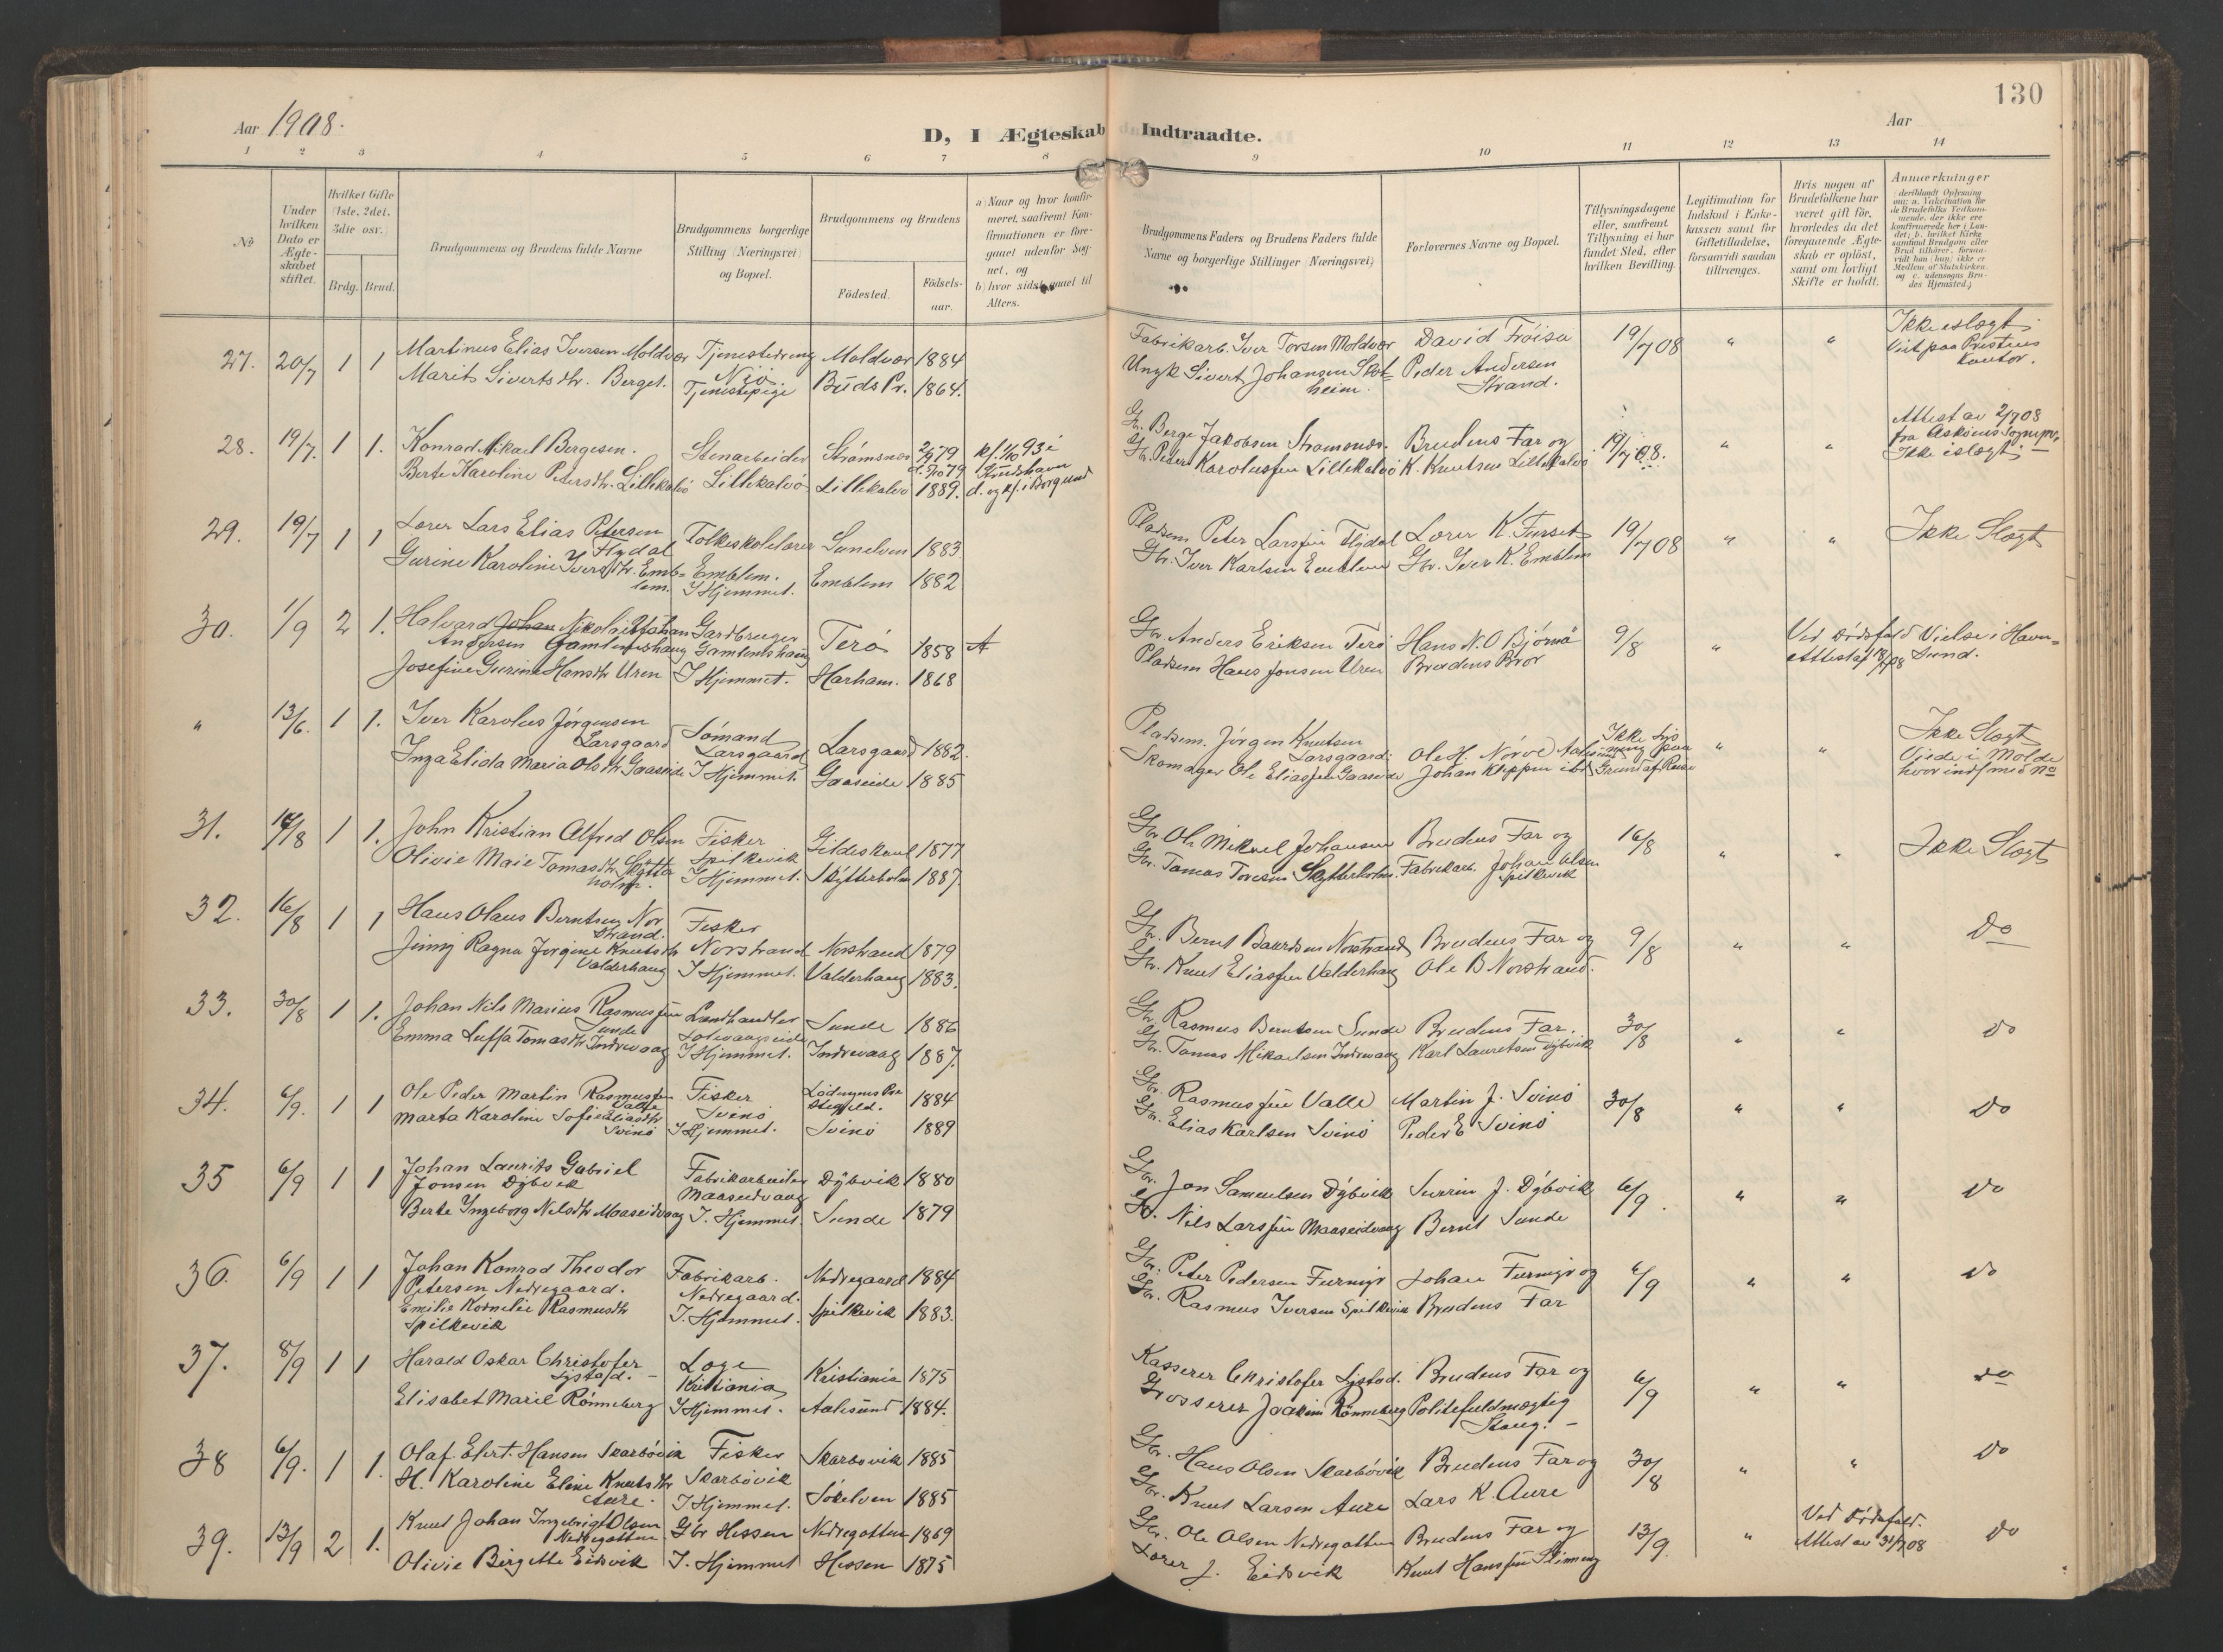 130
Aar 1908.
D, I Ægteskab Indtraadte.
Aar
1 2 3 4 5 6 7 8 9 10 11 12 13 14
No
Under hvilken Dato er Ægteskabet stiftet.
Hvilket Gifte (1ste, 2det, 3die osv.)
Brdg. Brud.
Brudgommens og Brudens fulde Navne
Brudgommens borgerlige Stilling (Næringsvei) og Bopæl.
Brudgommens og Brudens
Födested.
Födselsaar.
a) Naar og hvor konfirmeret, saafremt Konfirmationen er foregaaet udenfor Sognet, og
b) hvor sidst gaaet til Alters.
Brudgommens Faders og Brudens Faders fulde Navne og borgerlige Stillinger (Næringsvei)
Forlovernes Navne og Bopæl.
Tillysningsdagene eller, saafremt Tillysning ei har fundet Sted, efter hvilken Bevilling.
Legitimation for Indskud i Enkekassen samt for Giftetilladelse, forsaavidt saadan tiltrænges.
Hvis nogen af Brudefolkene har været gift för, hvorledes da det foregaaende Ægteskab er oplöst, samt om lovligt Skifte er holdt.
Anmerkninger
(deriblandt Oplysning om: a. Vakcination for de Brudefolks Vedkommende, der ikke ere konfirmerede her i Landet; b. hvilket Kirkesamfund Brudgom eller Brud tilhörer, forsaavidt han (hun) ikke er Medlem af Statskirken, og c. udensogns Brudes Hjemsted.)
27. 20/7 1 1 Martinus Elias Iversen Moldvær Tjenestedreng Moldvær 1884 Fabrikarb. Iver Torsen Moldvær David Fröisa 19/7 08 " " Ikke slægt.
Marit Sivertsdtr. Berget. Tjenestepige Buds Pr. 1864. Sivert Johansen Slotheim. Peder Andersen Strand. Viet paa Prestens Kontor.
28. 19/7. 1 1. Konrad Mikael Bergesen. Stenarbeider Strömsnes 2/9 79 kf. 1/10 93 i Gbr. Berge Jakobsen Strömsnes. Brudens Far og 19/7 08. " " Attest av 2/7 08 fra Asköens Sognepr.
Berte Karoline Petersdtr. Lillekalvö Lillekalvö Lillekalvö 1889. d. og kf. i Borgund Gbr. Peder Karolussen Lillekalvö K. Knutsen Lillekalvö Ikke i slægt.
29. 19/7 1 1 Lærer Lars Elias Petersen Flydal Folkeskolelærer Sunelven 1883 Pladsm. Peter Larssen Flydal Lærer K. Furset 19/7 08 " " Ikke Slægt
Gurine Karoline Iversdtr. Emblem. Emblem. I Hjemmet. Emblem 1882 Gbr. Iver Karlsen Emblem Gbr. Iver K. Emblem
30. 1/9 2 1. Halvard Johan Nikolai Johan Andersen Gamlemshaug Gardbruger Gamlemshaug Terö 1858 A Gbr. Anders Eriksen Terö Hans N. O Bjørnö 9/8 " Ved Dödsfald Attest af 18/7 08 Vielse i Havnsund.
Josefine Gurine Hansdtr Uren I Hjemmet. Harham. 1868 Pladsm Hans Jonsen Uren Brudens Bror
" 13/6. 1 1. Iver Karolus Jörgensen Larsgaard Sömand Larsgaard Larsgaard 1882. Pladsm. Jörgen Knutsen Larsgaard: Ole H. Nörve Ikke lysning paa Grund af Reise " " Ikke Slægt
Inga Elida Maria Olsdtr Gaaseide I Hjemmet. Gaaseide 1885 Skomager Ole Eliassen Gaaseide Johan Klippen ibd Viede i Molde hvor indf med No
31. 16/8 1 1. John Kristian Alfred Olsen Fisker Spilkevik Gildeskaal 1877 Gbr. Ole Mikael Johansen Brudens Far og 16/8 " " Ikke Slægt
Olivie Marie Tomasdtr Skytterholm. I Hjemmet. Skytterholm 1887. Gbr. Tomas Toresen Skytterholm. Fabrikarb. Johan Olsen Spilkevik
32. 16/8 1 1 Hans Olaus Berntsen Norstrand. Fisker Norstrand Norstrand 1879 Gbr. Bernt Baardsen Norstrand Brudens Far og 9/8 " " Do
Jinny Ragna Jorgine Knutsdtr Valderhaug I Hjemmet. Valderhaug 1883. Gbr. Knut Eliassen Valderhaug Ole B Norstrand.
33. 30/8 1 1. Johan Nils Marius Rasmussen Sunde Landhandler Solevaagseide Sunde 1886 Gbr Rasmus Berntsen Sunde Brudens Far. 30/8 " " Do
Emma Luffa Tomasdtr Indrevaag I Hjemmet. Indrevaag 1887. Gbr. Tomas Mikaelsen Indrevaag Karl Lauretsen Dybvik
34. 6/9. 1 1 Ole Peder Martin Rasmussen Valle Fisker Svinö 1884 Gbr Rasmussen Valle Martin J. Svinö 30/8 " " Do
Marta Karoline Sofie Eliasdtr Svinö I Hjemmet. Svinö 1889 Gbr. Elias Karlsen Svinö Peder E Svinö
35 6/9 1 1 Johan Laurits Gabriel Jonsen Dybvik Fabrikarbeider Maaseidvaag Dybvik 1880 Gbr. Jon Samuelsen Dybvik Sverin J. Dybvik 6/9. " " Do
Berte Ingeborg Nilsdtr Maaseidvaag I. Hjemmet. Sunde 1879 Gbr. Nils Larssen Maaseidvaag Bernt Sunde
36. 6/9 1 1 Johan Konrad Theodor Petersen Nedregaard. Fabrikarb. Nedregaard. Nedregaard 1884 Gbr. Peter Pedersen Furmyr Johan Furmyr og 6/9 " " Do
Emilie Kornelie Rasmusdtr Spilkevik I. Hjemmet. Spilkevik 1883. Gbr. Rasmus Iversen Spilkevik Brudens Far
37. 8/9 1 1 Harald Oskar Christofer Lystad. Læge Kristiania Kristiania 1875 Kasserer Christofer Lystad. Brudens Far og 6/9 " " Do
Elisabet Maril Rönneberg I Hjemmet. Aalesund 1884. Grosserer Joakim Rönneberg Politifuldmægtig Stang.
38 6/9. 1 1. Olaf Elert. Hansen Skarbövik Fisker Skarbövik Skarbövik 1885 Gbr. Hans Olsen Skarbövik Brudens Far og 30/8 " " Do
H. Karoline Eline Knutsdtr Aure. I Hjemmet. Sökelven 1885 Gbr. Knut Larsen Aure Lars K. Aure
39. 13/9 2 1. Knut Johan Ingebrigt Olsen Nedregotten Gbr Hessen Nedregotten 1869 Gbr. Ole Olsen Nedregotten Brudens Far og 13/9. " Ved Dödsfald. Attest av 31/7 08 Do
Olivie Birgitte Eidsvik I. Hjemmet Hessen 1875 Lærer J. Eidsvik Knut Hanssen Slinning